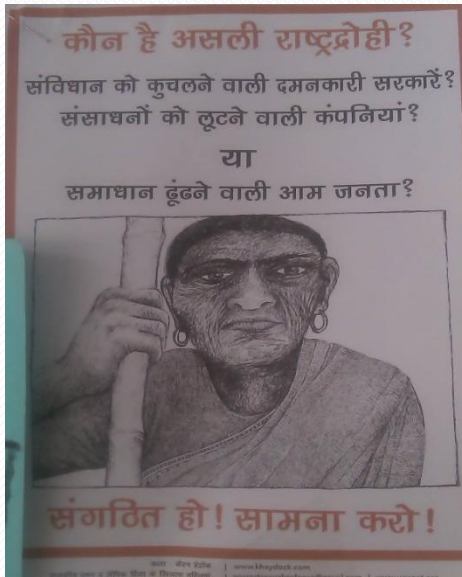 कौन है असली राष्ट्रद्रोही?
संविधान को कुचलने वाली दमनकारी सरकारें?
संसाधनों को लूटने वाली कंपनियां?
या
समाधान ढूंढने वाली आम जनता?
संगठित हो! सामना करो!